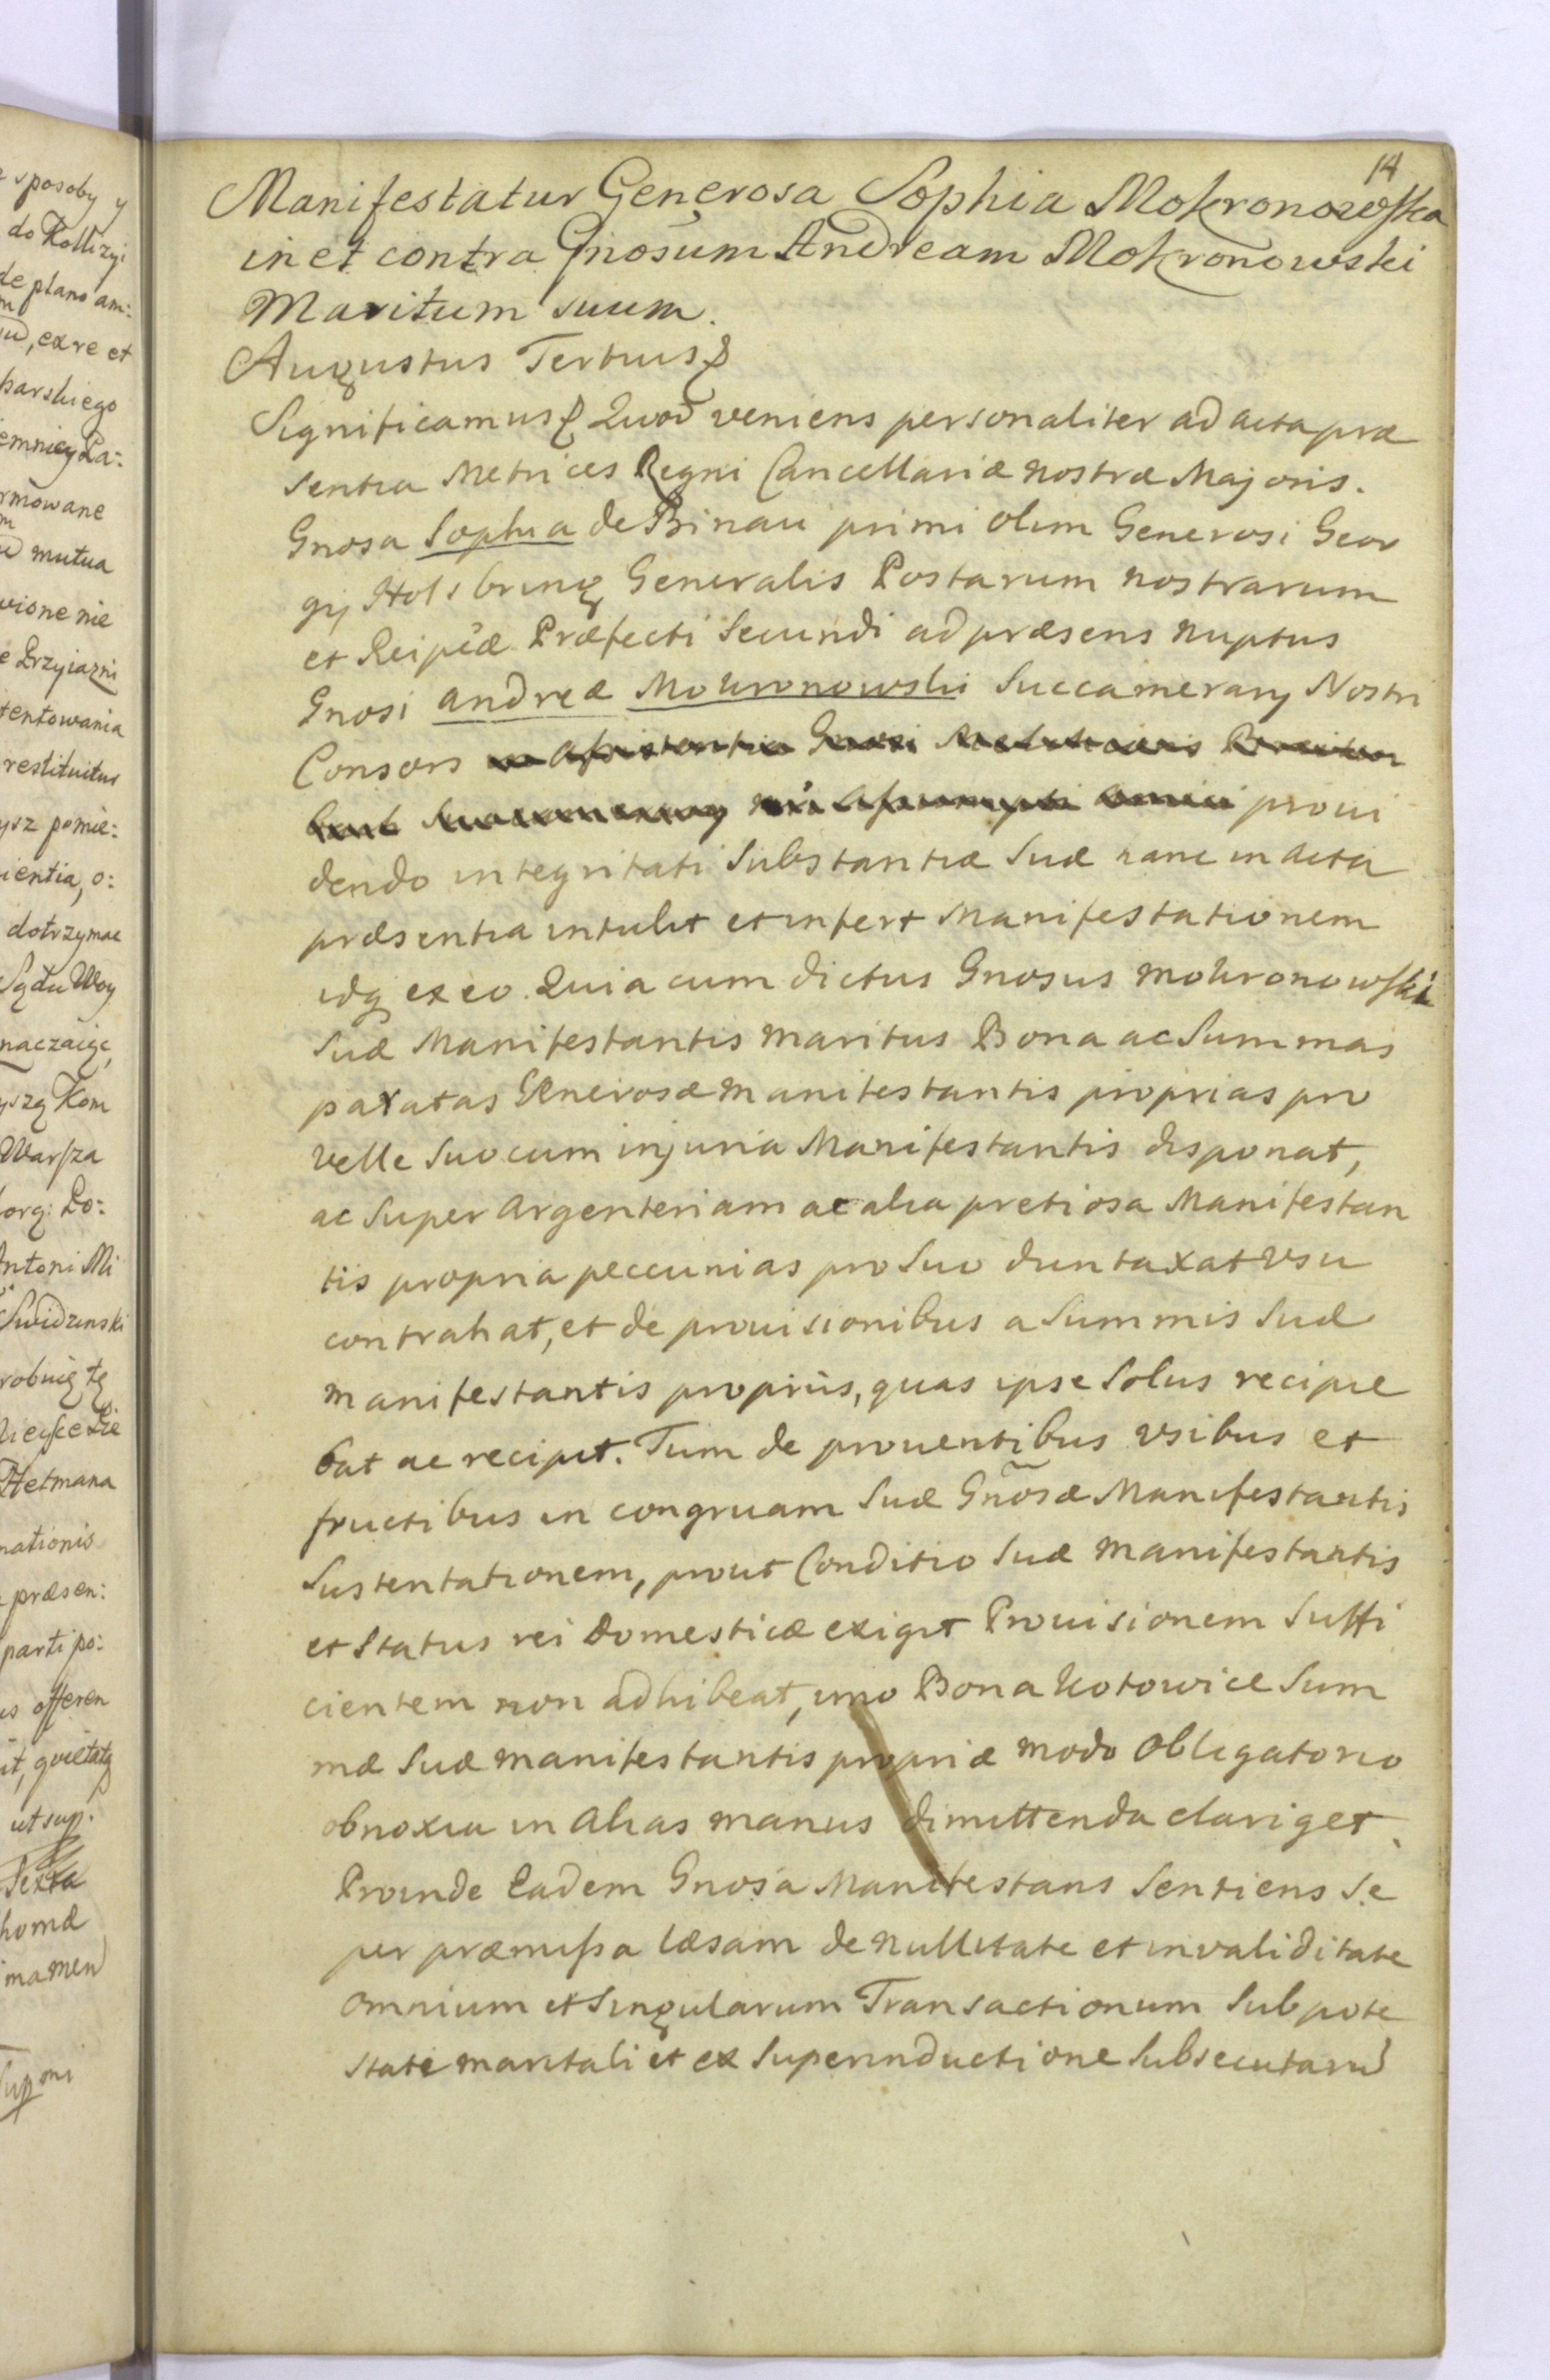 sposoby y
do Kollizyi
de plano am:
, ex re et
barskiego
emniey Pa:
rmowane
mutua
vione nie
e Przyiazni
tentowania
restituitur
ysz pomie:
ientia, o:
dotrzymac
Sądu Woy
naczaiąc,
yszą Kom
Warsza
org: Po:
Antoni Mi
Swidzinski
robnię tę
Hetmana
nationis
præsen:
parti po:
us offeren
it, quietatq
ut sup.
Sexta
homæ
mamen
14
Manifestatur Generosa Sophia Mokronowska
in et contra Gnosum Andream Mokronowski
Maritum suum.
Augustus Tertius
Significamus Quod veniens personaliter ad acta præ
sentia Metrices Regni Cancellariæ nostræ Majoris.
Gnosa Sophia de Brinau primi olim Generosi Geor
gij Holsbring Generalis Postarum nostrarum
et Reipcæ Præfecti Secundi ad præsens nuptus
Gnosi Andreæ Mokronowski Succamerary Nostri
Consors
proui
dendo integritati Substantiæ Suæ hanc in Acta
præsentia intulit et infert Manifestationem
idq ex eo. Quia cum dictus Gnosus Mokronowski
Suæ Manifestantis maritus Bona ac Summas
paratas Generosæ Manifestantis proprias pro
velle Suo cum injuria Manifestantis disponat,
ac Super Argenteriam ac alia pretiosa Manifestan
tis propria peccunias pro Suo duntaxat vsu
contrahat, et de prouisionibus a Summis Suæ
manifestantis propriis, quas ipse Solus recipie
bat ac recipit. Tum de prouentibus vsibus et
fructibus in congruam Suæ Gnosæ Manifestantis
Sustentationem, prout Conditio Suæ Manifestantis
et Status rei Domesticæ exigit Prouisionem Suffi
cientem non adhibeat, imo Bona Kotowice Sum
mæ Suæ Manifestantis propriæ modo Obligatorio
obnoxia in Alias manus dimittenda clariget.
Proinde Eadem Gnosa Manifestans Sentiens Se
per præmissa læsam de nullitate et invaliditate
omnium et Singularum Transactionum Sub pote
state maritali et ex Superinductione Subsecutaru